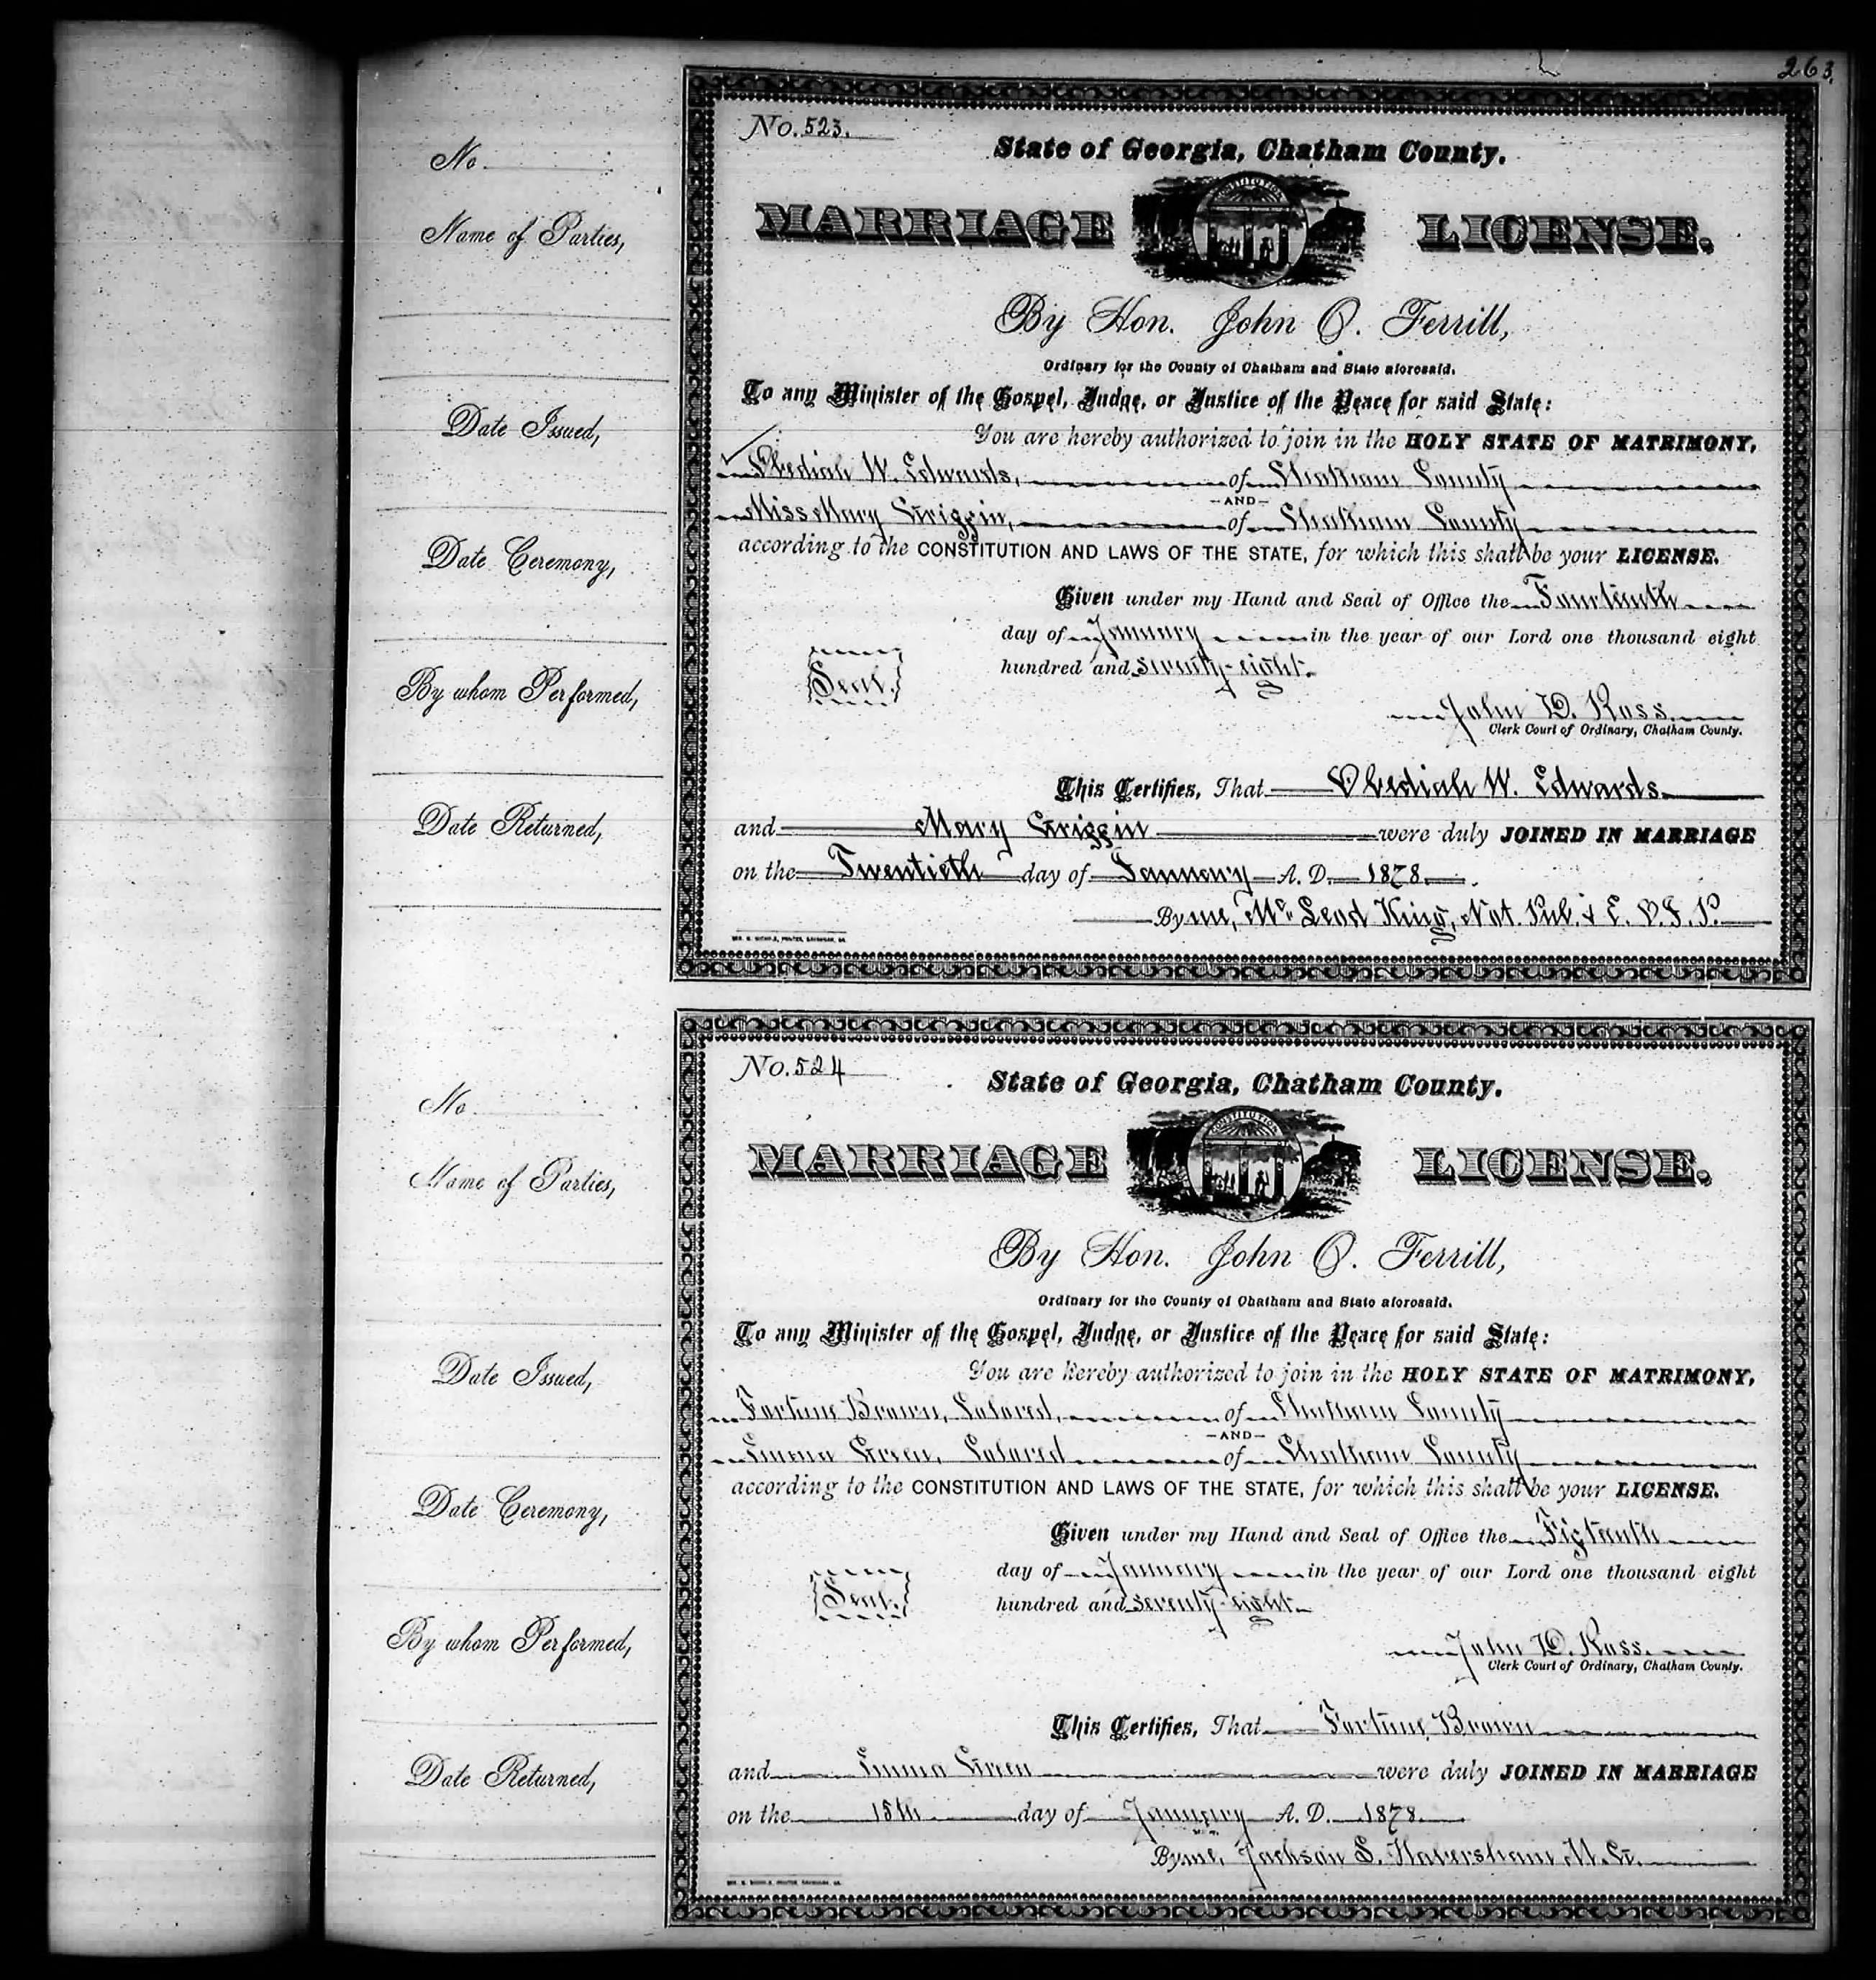 263.
No.
Name of Parties,
Date Issued,
Date Ceremony,
By whom Performed,
Date Returned,
No. 523.
State of Georgia, Chatham County.
MARRIAGE LICENSE.
CONSTITUTION
By Hon. John O. Ferrill,
Ordinary for the County of Chatham and State aforesaid.
To any Minister of the Gospel, Judge, or Justice of the Peace for said State:
You are hereby authorized to join in the HOLY STATE OF MATRIMONY,
Obediah W. Edwards, of Chatham County
AND
Miss Mary Griffin, of Chatham County
according to the CONSTITUTION AND LAWS OF THE STATE, for which this shall be your LICENSE.
Given under my Hand and Seal of Office the Fourteenth
day of January in the year of our Lord one thousand eight
hundred and seventy-eight.
Seal.
John D. Ross.
Clerk Court of Ordinary, Chatham County.
This Certifies, That Obediah W. Edwards
and Mary Griffin were duly JOINED IN MARRIAGE
on the Twentieth day of January A. D. 1878.
By me, King, Not. Pub. &
No.
Name of Parties,
Date Issued,
Date Ceremony,
By whom Performed,
Date Returned,
No. 524
State of Georgia, Chatham County.
MARRIAGE LICENSE.
CONSTITUTION
By Hon. John O. Ferrill,
Ordinary for the County of Chatham and State aforesaid.
To any Minister of the Gospel, Judge, or Justice of the Peace for said State:
You are hereby authorized to join in the HOLY STATE OF MATRIMONY,
Fortune Brown, Colored, of Chatham County
AND
Emma Green, Colored of Chatham County
according to the CONSTITUTION AND LAWS OF THE STATE, for which this shall be your LICENSE.
Given under my Hand and Seal of Office the Fifteenth
day of January in the year of our Lord one thousand eight
hundred and seventy-eight.
Seal.
John D. Ross.
Clerk Court of Ordinary, Chatham County.
This Certifies, That Fortune Brown
and Emma Green were duly JOINED IN MARRIAGE
on the 15th day of January A. D. 1878.
By me, Jackson S. Habersham, M. G.